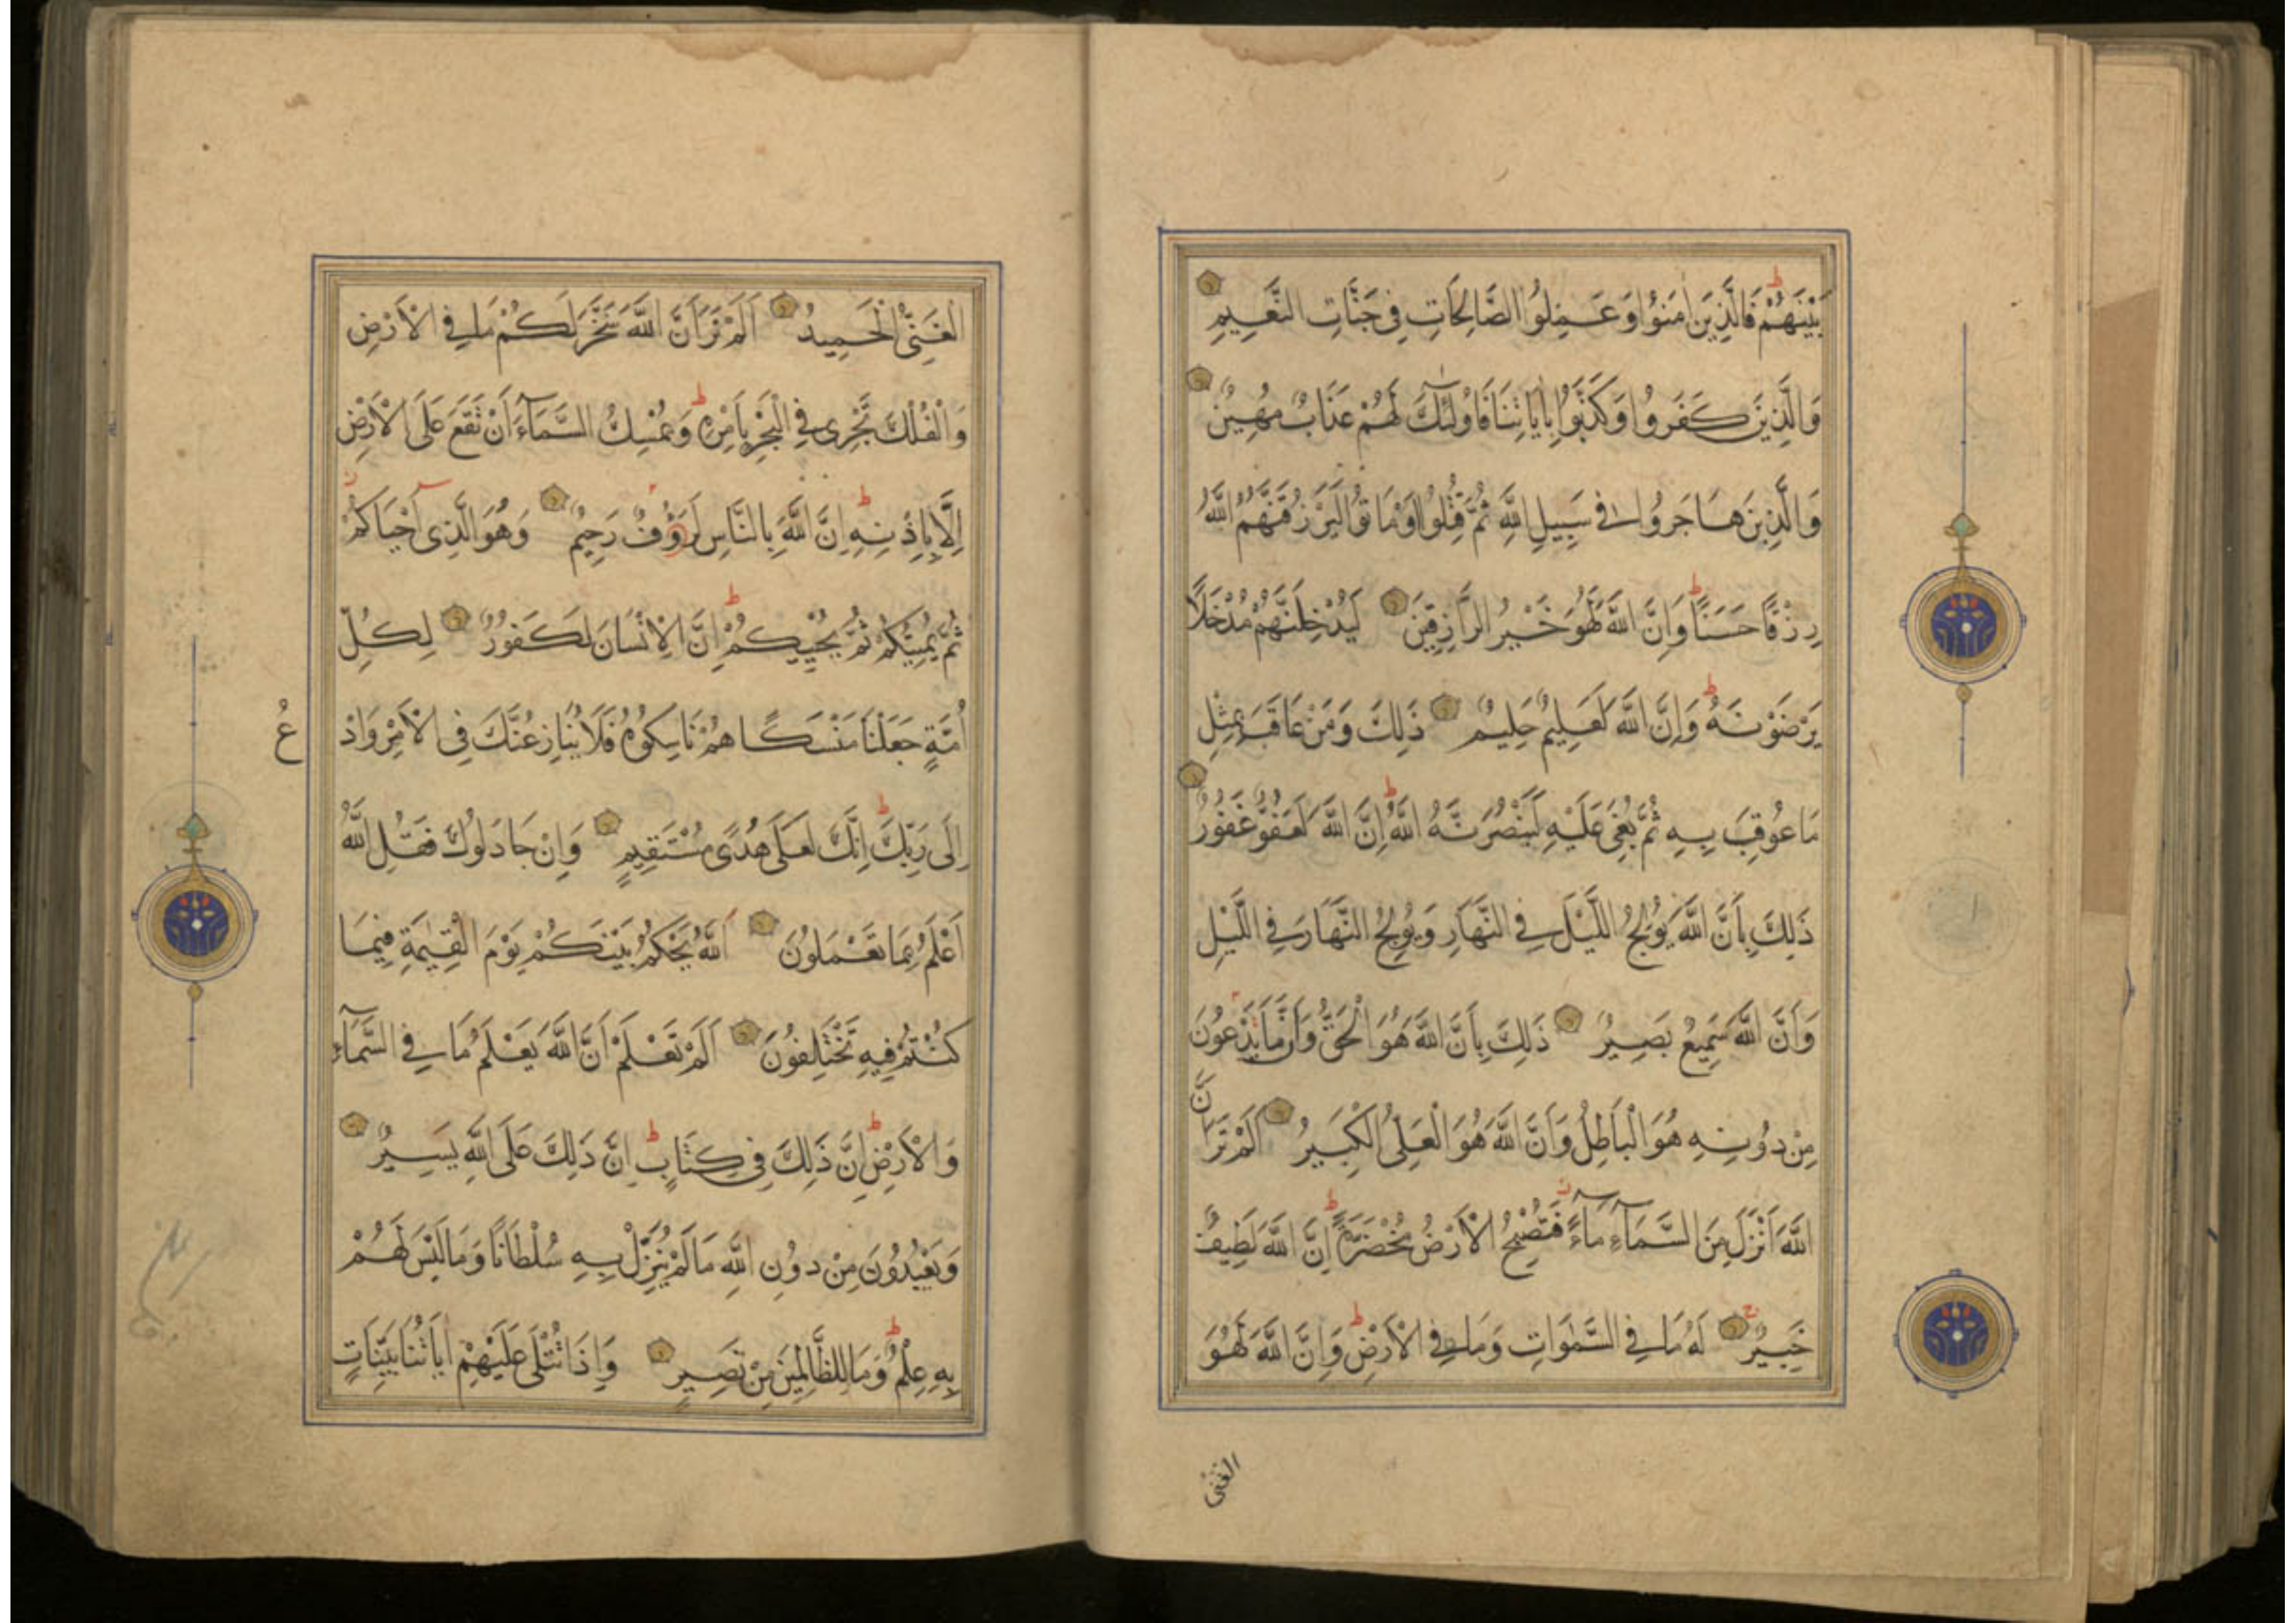 بَيْنَهُمْ فَالَّذِينَ اٰمَنُوا وَعَمِلُوا الصَّالِحَاتِ فِي جَنَّاتِ النَّعِيمِ
وَالَّذِينَ كَفَرُوا وَكَذَّبُوا بِاٰيَاتِنَا فَاُولٰئِكَ لَهُمْ عَذَابٌ مُهِينٌ
وَالَّذِينَ هَاجَرُوا فِي سَبِيلِ اللّٰهِ ثُمَّ قُتِلُوا اَوْ مَاتُوا لَيَرْزُقَنَّهُمُ اللّٰهُ
رِزْقًا حَسَنًا وَاِنَّ اللّٰهَ لَهُوَ خَيْرُ الرَّازِقِينَ لَيُدْخِلَنَّهُمْ مُدْخَلًا
يَرْضَوْنَهُ وَاِنَّ اللّٰهَ لَعَلِيمٌ حَلِيمٌ ذَلِكَ وَمَنْ عَاقَبَ بِمِثْلِ
مَا عُوقِبَ بِهِ ثُمَّ بُغِيَ عَلَيْهِ لَيَنْصُرَنَّهُ اللّٰهُ اِنَّ اللّٰهَ لَعَفُوٌّ غَفُورٌ
ذَلِكَ بِاَنَّ اللّٰهَ يُولِجُ اللَّيْلَ فِي النَّهَارِ وَيُولِجُ النَّهَارَ فِي اللَّيْلِ
وَاَنَّ اللّٰهَ سَمِيعٌ بَصِيرٌ ذَلِكَ بِاَنَّ اللّٰهَ هُوَ الْحَقُّ وَاَنَّ مَا يَدْعُونَ
مِنْ دُونِهِ هُوَ الْبَاطِلُ وَاَنَّ اللّٰهَ هُوَ الْعَلِيُّ الْكَبِيرُ اَلَمْ تَرَ اَنَّ
اللّٰهَ اَنْزَلَ مِنَ السَّمَآءِ مَآءً فَتُصْبِحُ الْاَرْضُ مُخْضَرَّةً اِنَّ اللّٰهَ لَطِيفٌ
خَبِيرٌ لَهُ مَا فِي السَّمٰوَاتِ وَمَا فِي الْاَرْضِ وَاِنَّ اللّٰهَ لَهُوَ
الغنى
الْغَنِيُّ الْحَمِيدُ اَلَمْ تَرَ اَنَّ اللّٰهَ سَخَّرَ لَكُمْ مَا فِي الْاَرْضِ
وَالْفُلْكَ تَجْرِي فِي الْبَحْرِ بِاَمْرِهِ وَيُمْسِكُ السَّمَآءَ اَنْ تَقَعَ عَلَى الْاَرْضِ
اِلَّا بِاِذْنِهِ اِنَّ اللّٰهَ بِالنَّاسِ لَرَؤُوفٌ رَحِيمٌ وَهُوَ الَّذِي اَحْيَاكُمْ
ثُمَّ يُمِيتُكُمْ ثُمَّ يُحْيِيكُمْ اِنَّ الْاِنْسَانَ لَكَفُورٌ لِكُلِّ
اُمَّةٍ جَعَلْنَا مَنْسَكًا هُمْ نَاسِكُوهُ فَلَا يُنَازِعُنَّكَ فِي الْاَمْرِ وَادْعُ
اِلَى رَبِّكَ اِنَّكَ لَعَلَى هُدًى مُسْتَقِيمٍ وَاِنْ جَادَلُوكَ فَقُلِ اللّٰهُ
اَعْلَمُ بِمَا تَعْمَلُونَ اَللّٰهُ يَحْكُمُ بَيْنَكُمْ يَوْمَ الْقِيٰمَةِ فِيمَا
كُنْتُمْ فِيهِ تَخْتَلِفُونَ اَلَمْ تَعْلَمْ اَنَّ اللّٰهَ يَعْلَمُ مَا فِي السَّمَآءِ
وَالْاَرْضِ اِنَّ ذَلِكَ فِي كِتَابٍ اِنَّ ذَلِكَ عَلَى اللّٰهِ يَسِيرٌ
وَيَعْبُدُونَ مِنْ دُونِ اللّٰهِ مَا لَمْ يُنَزِّلْ بِهِ سُلْطَانًا وَمَا لَيْسَ لَهُمْ
بِهِ عِلْمٌ وَمَا لِلظَّالِمِينَ مِنْ نَصِيرٍ وَاِذَا تُتْلَى عَلَيْهِمْ اٰيَاتُنَا بَيِّنَاتٍ